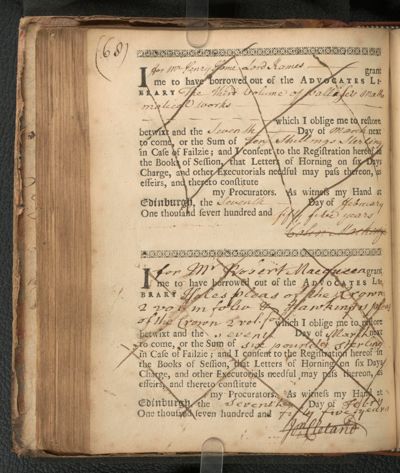 (68)
I for Mr Henry Home Lord Kames grant
me to have borrowed out of the ADVOCATES LI-
BRARY The third Volume of Wallis's Mathe
matical works
which I oblige me to restore
betwixt and the Seventh Day of March next
to come, or the Sum of Ten Shillings Sterling
in Case of Failzie; and I consent to the Registration hereof in
the Books of Session, that Letters of Horning on six Days
Charge, and other Executorials needful may pass thereon, as
effeirs, and thereto constitute
my Procurators. As witness my Hand at
Edinburgh, the Seventh Day of February
One thousand seven hundred and fifty five years
I for Mr Robert Macqueen grant
me to have borrowed out of the ADVOCATES LI-
BRARY Hales pleas of the Crown
2 vol in folio & Hawkins's pleas
of the Crown 2 vol: which I oblige me to restore
betwixt and the seventh Day of March next
to come, or the Sum of six pounds sterling
in Case of Failzie; and I consent to the Registration hereof in
the Books of Session, that Letters of Horning on six Days
Charge, and other Executorials needful may pass thereon, as
effeirs, and thereto constitute
my Procurators. As witness my Hand at
Edinburgh, the seventh Day of Febry
One thousand seven hundred and fifty five years